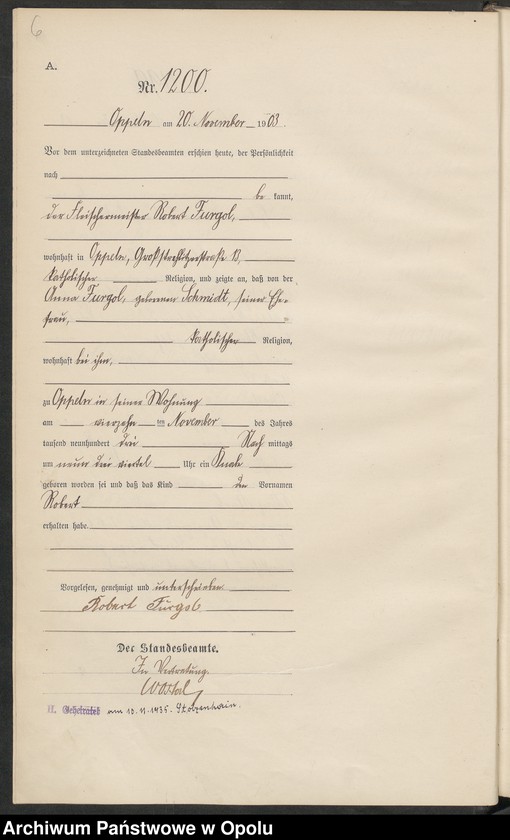 6
A.
Nr. 1200.
Oppeln am 20. November 1903.
Vor dem unterzeichneten Standesbeamten erschien heute, der Persönlichkeit
nach
be kannt,
der Fleischermeister Robert Furgol,
wohnhaft in Oppeln, Großstrehlitzerstraße 13,
katholischer Religion, und zeigte an, daß von der
Anna Furgol, geborenen Schmidt, seiner Ehe-
frau,
katholischer Religion,
wohnhaft bei ihm,
zu Oppeln in seiner Wohnung
am vierzehn ten November des Jahres
tausend neunhundert drei Nach mittags
um neun drei viertel Uhr ein Knabe
geboren worden sei und daß das Kind den Vornamen
Robert
erhalten habe.
Vorgelesen, genehmigt und unterschrieben
Robert Furgol
Der Standesbeamte.
In Vertretung.
II. Geheiratet am 10.11.1935. Stolzenhain.
Archiwum Państwowe w Opolu